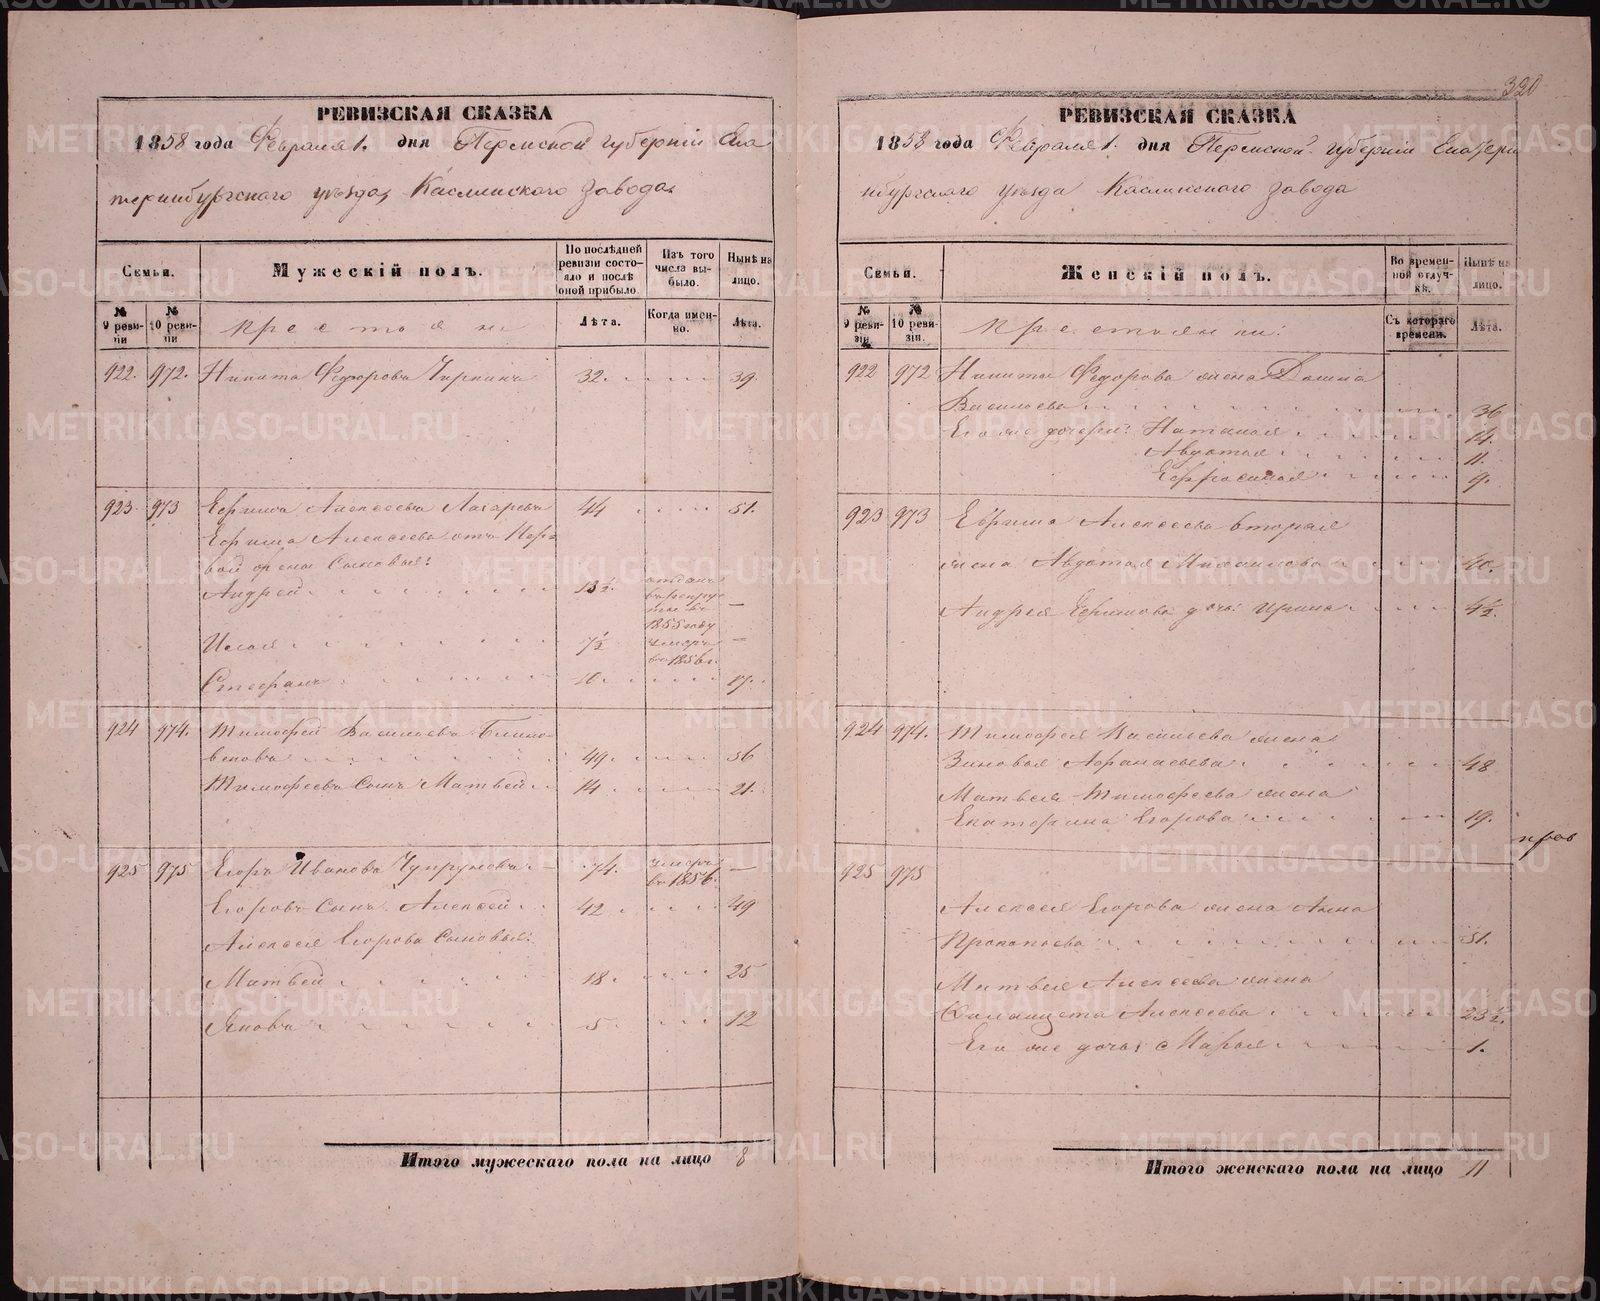 320
РЕВИЗСКАЯ СКАЗКА
1858 года Февраля 1. дня Пермской губерніи Ека
теринбургскаго уѣзда, Каслинскаго завода.
Семьи.
Мужескій полъ.
По послѣдней ревизіи состояло и послѣ оной прибыло.
Изъ того числа выбыло.
Нынѣ на лицо.
№ 9 ревизіи
№ 10 ревизіи
Крестьяне
Лѣта.
Когда именно.
Лѣта.
922. 972. Никита Федоровъ Чиркинъ 32. 39.
923 973 Ефимъ Алексѣевъ Лазаревъ 44 51.
Ефима Алексѣева отъ пер
вой жены сыновья:
Андрей 13½ отданъ въ рекруты въ 1855 году —
Исая 7½ умеръ въ 1856 г. —
Стефанъ 10. 17.
924 974. Тимофей Васильевъ Блино
всковъ 49. 56
Тимофеевъ сынъ Матвей 14 21.
925 975 Егоръ Ивановъ Чупруновъ 74. умеръ въ 1856. —
Егоровъ сынъ Алексей 42 49
Алексея Егорова сыновья:
Матвей 18. 25
Яковъ 5. 12
Итого мужескаго пола на лицо 8
РЕВИЗСКАЯ СКАЗКА
1858 года Февраля 1. дня Пермской губерніи Екатери
нбургскаго уѣзда Каслинскаго завода
Семьи.
Женскій полъ.
Во временной отлучкѣ.
Нынѣ на лицо.
№ 9 ревизіи.
№ 10 ревизіи.
Крестьянки:
Съ котораго времени.
Лѣта.
922 972 Никиты Федорова жена Домна
Васильева 36
Его же дочери: Наталья 14.
Авдотья 11.
Ефросинья 9.
923 973 Ефима Алексѣева вторая
жена Авдотья Михайлова 40.
Андрея Ефимова дочь Ирина 4½.
924 974. Тимофея Васильева жена
Зиновья Афанасьева 48
Матвея Тимофеева жена
Екатерина Егорова 19.
925 975
Алексея Егорова жена Анна
Прокопьева 51.
Матвея Алексѣева жена
Алексѣева 23½.
Его же дочь Марья 1.
Итого женскаго пола на лицо 11
METRIKI.GASO-URAL.RU